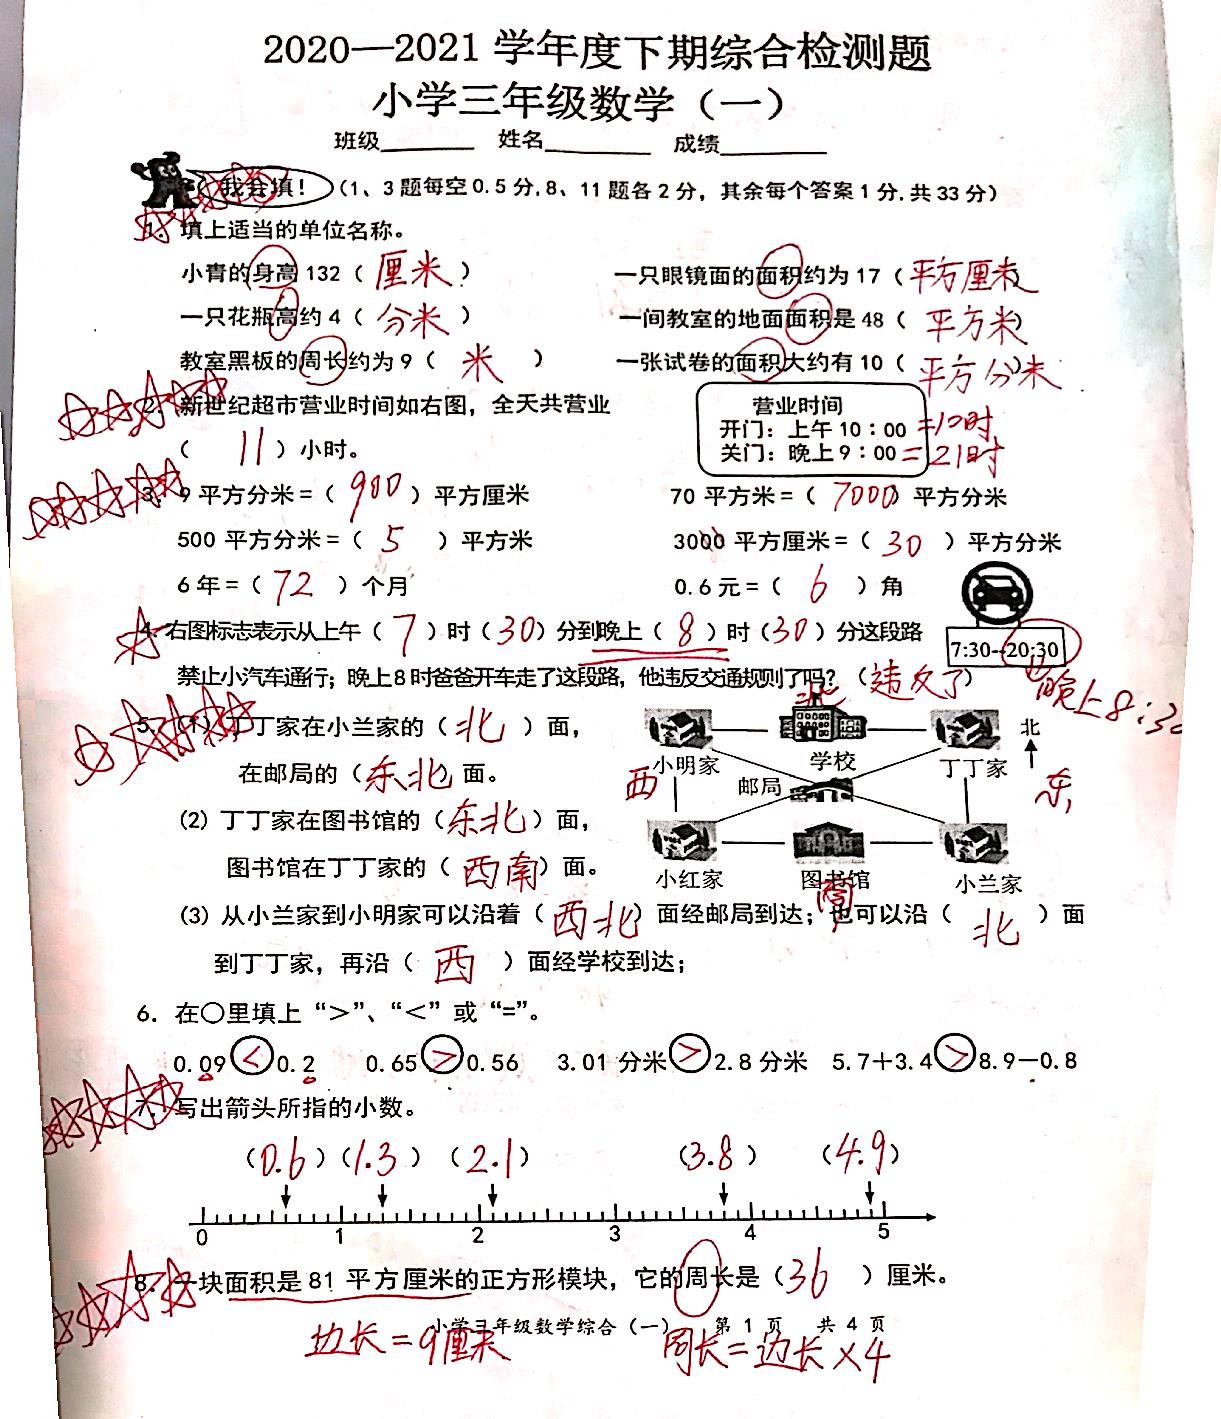 2020—2021 学年度下期综合检测题
小学三年级数学（一）
班级 姓名 成绩
我会填！（1、3 题每空 0.5 分, 8、11 题各 2 分，其余每个答案 1 分, 共 33 分）
1. 填上适当的单位名称。
小青的身高 132（ 厘米 ） 一只眼镜面的面积约为 17（平方厘米）
一只花瓶高约 4（ 分米 ） 一间教室的地面面积是 48（ 平方米）
教室黑板的周长约为 9（ 米 ） 一张试卷的面积大约有 10（ 平方分米）
2. 新世纪超市营业时间如右图，全天共营业
（ 11 ）小时。
营业时间
开门：上午 10：00 =10时
关门：晚上 9：00 =21时
3. 9 平方分米＝（ 900 ）平方厘米 70 平方米＝（ 7000）平方分米
500 平方分米＝（ 5 ）平方米 3000 平方厘米＝（ 30 ）平方分米
6 年＝（ 72 ）个月 0.6 元＝（ 6 ）角
4. 右图标志表示从上午（ 7 ）时（30）分到晚上（ 8 ）时（30 ）分这段路
7:30--20:30
禁止小汽车通行；晚上 8 时爸爸开车走了这段路，他违反交通规则了吗？（违反了）
晚上8:30
5. (1) 丁丁家在小兰家的（ 北 ）面，
在邮局的（东北）面。
(2) 丁丁家在图书馆的（东北）面，
图书馆在丁丁家的（ 西南）面。
北
学校
小明家
丁丁家
北
西
邮局
东
小红家
图书馆
小兰家
南
(3) 从小兰家到小明家可以沿着（ 西北）面经邮局到达；也可以沿（ 北 ）面
到丁丁家，再沿（ 西 ）面经学校到达；
6. 在○里填上“＞”、“＜” 或 “=”。
0.09＜0.2 0.65＞0.56 3.01 分米＞2.8 分米 5.7＋3.4＞8.9－0.8
7. 写出箭头所指的小数。
（0.6）（1.3 ）（2.1） （3.8 ） （4.9）
0 1 2 3 4 5
8. 一块面积是 81 平方厘米的正方形模块，它的周长是（36 ）厘米。
小学三年级数学综合（一） 第 1 页 共 4 页
边长=9厘米 周长=边长×4